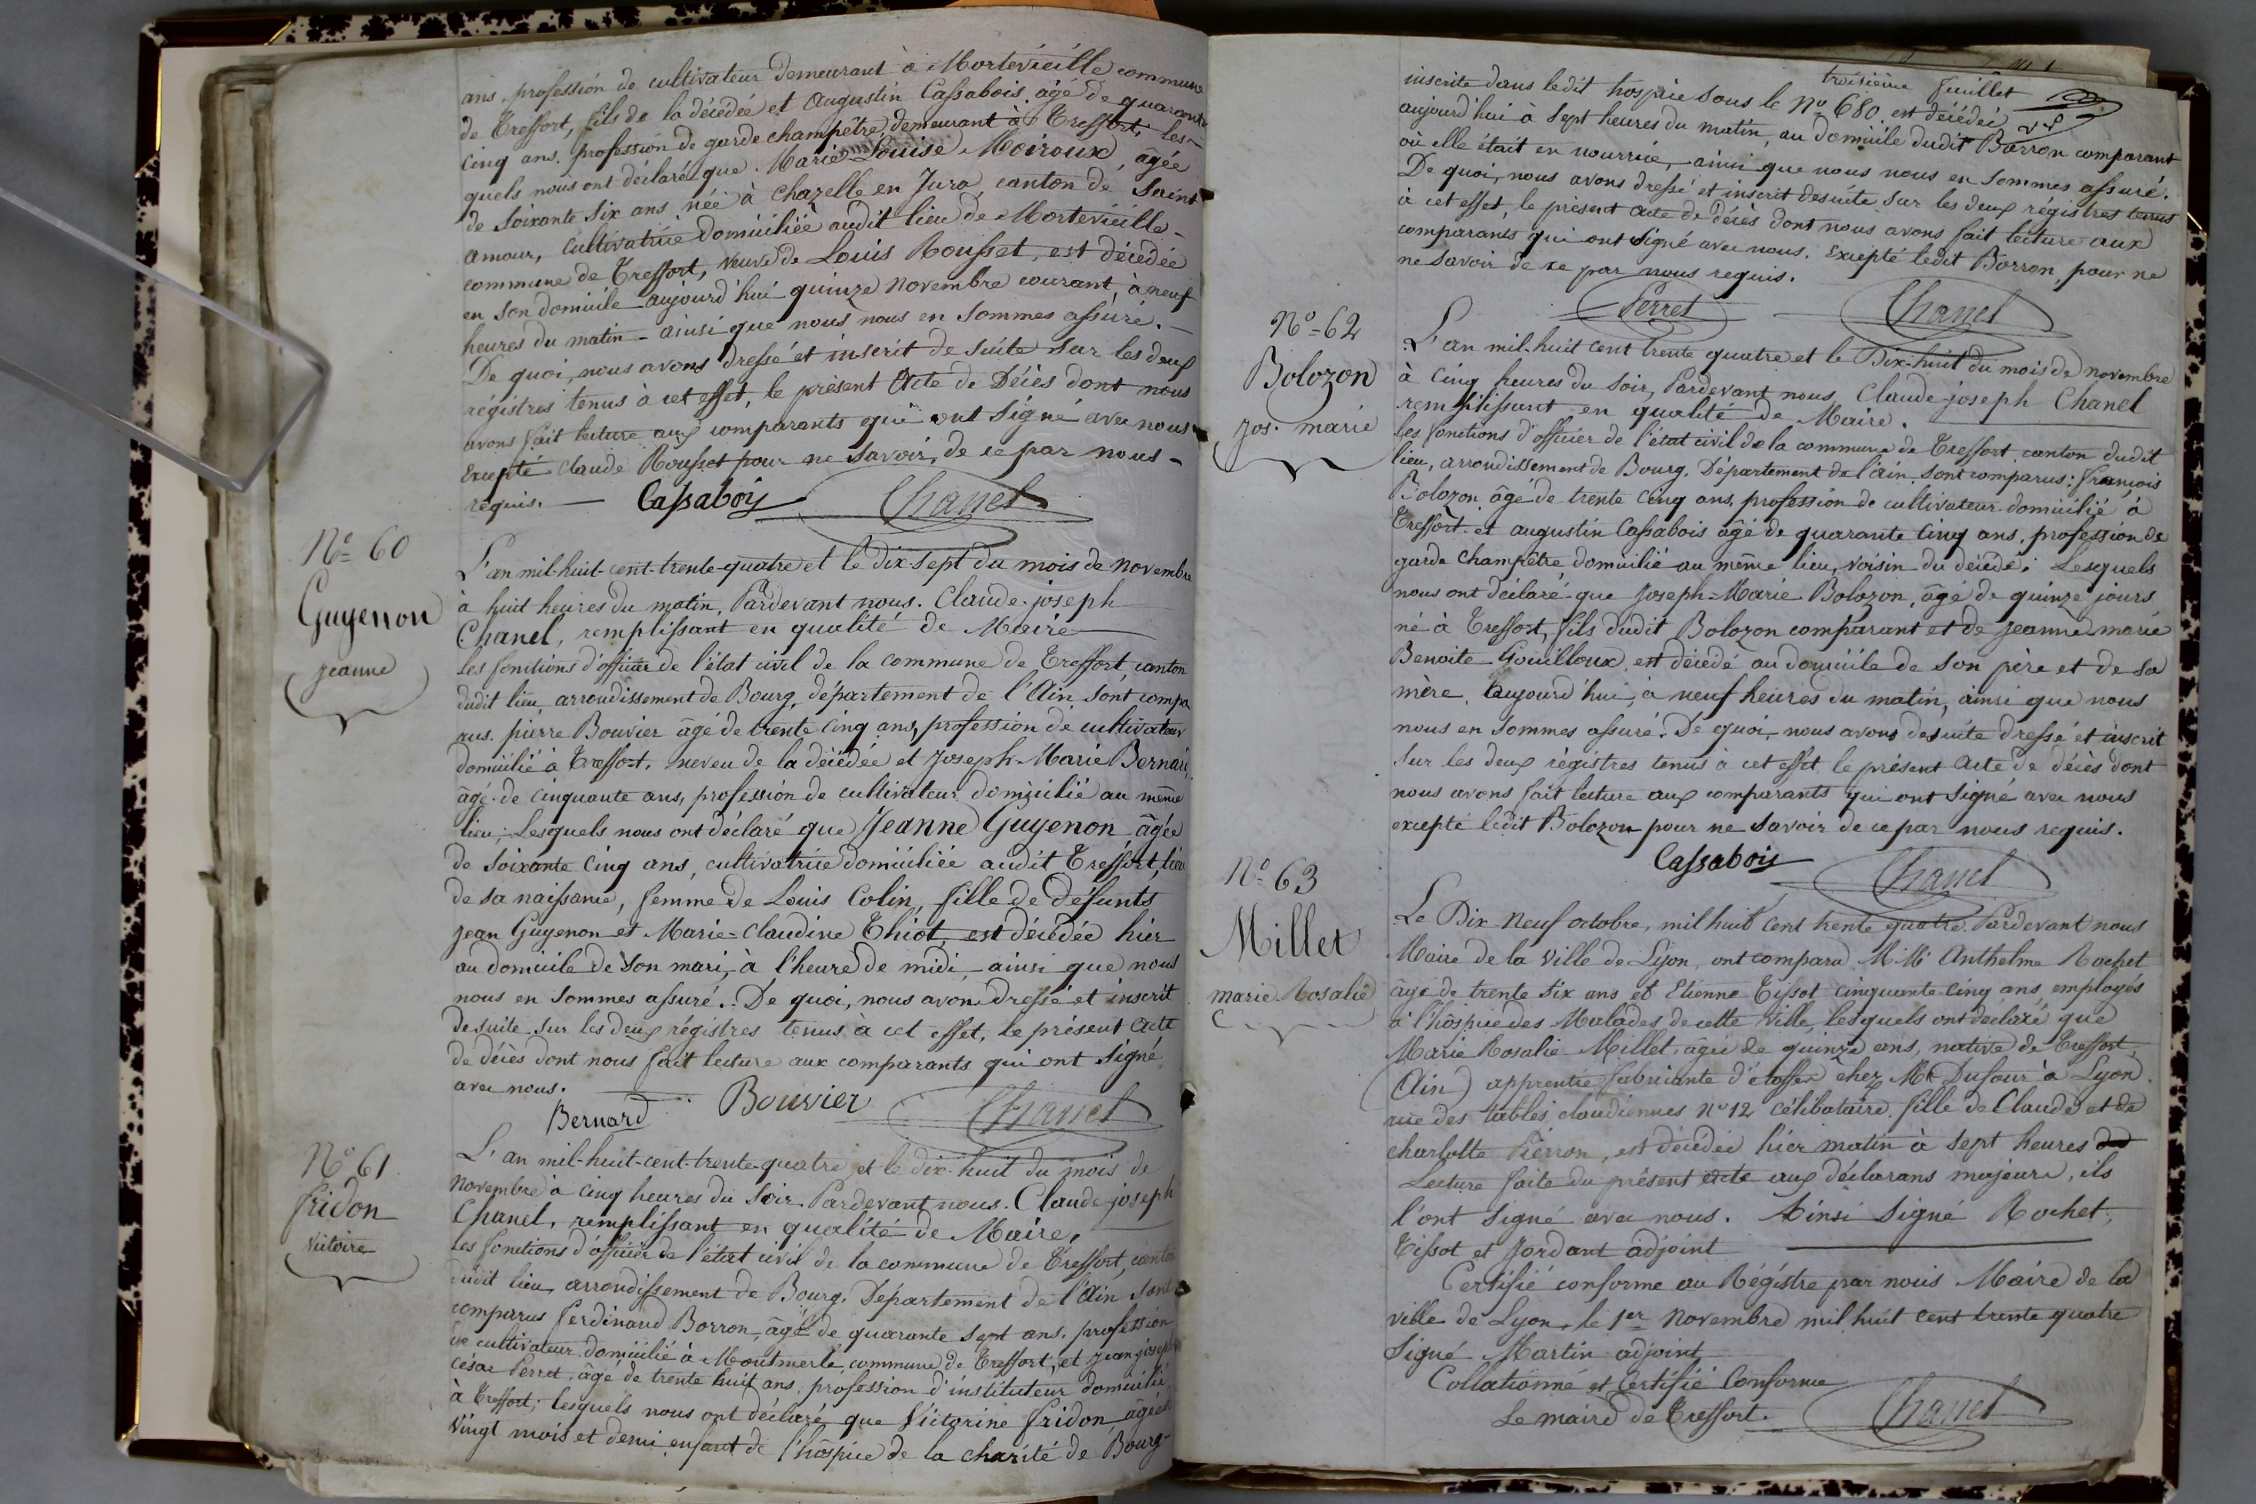 ans, profession de cultivateur demeurant à Mortevieille commune
de Treffort, fils de la décédée et Augustin Cassabois âgé de quarante
cinq ans, profession de garde champêtre, demeurant à Treffort, les-
quels nous ont déclaré que Marie Louise Moiroux, âgée
de soixante six ans née à Chazelle en Jura, canton de Saint
amour, cultivatrice domiciliée audit lieu de Mortevieille-
commune de Treffort, veuve de Louis Rousset, est décédée
en son domicile aujourd'hui quinze novembre courant, à neuf
heures du matin - ainsi que nous nous en sommes assuré. -
De quoi, nous avons dressé et inscrit de suite sur les deux
régistres tenus à cet effet, le présent Acte de Décès dont nous
avons fait lecture aux comparants qui ont signé avec nous
Excepté Claude Rousset pour ne savoir, de ce par nous -
requis. - Cassabois Chanel
N° 60
Guyenon
jeanne
L'an mil-huit-cent-trente-quatre et le dix-sept du mois de novembre
à huit heures du matin, Pardevant nous. Claude-joseph
Chanel, remplissant en qualité de Maire
les fonctions d'officier de l'état civil de la commune de Treffort, canton
dudit lieu, arrondissement de Bourg, département de l'Ain sont compa
rus. pierre Bouvier âgé de trente cinq ans, profession de cultivateur
domicilié à Treffort, neveu de la décédée et Joseph-Marie Bernard,
âgé de cinquante ans, profession de cultivateur domicilié au même
lieu; Lesquels nous ont déclaré que Jeanne Guyenon âgée
de soixante cinq ans, cultivatrice domiciliée audit Treffort, lieu
de sa naissance, femme de Louis Colin, fille de défunts
jean Guyenon et Marie-Claudine Thiot, est décédée hier
au domicile de son mari, à l'heure de midi - ainsi que nous
nous en sommes assuré. De quoi, nous avons dressé et inscrit
de suite sur les deux régistres tenus à cet effet, le présent acte
de décès dont nous fait lecture aux comparants qui ont signé
avec nous.
Bernard Bouvier Chanel
N° 61
fridon
victoire
L'an mil-huit-cent-trente-quatre et le dix-huit du mois de
novembre à cinq heures du soir Pardevant nous. Claude-joseph
Chanel, remplissant en qualité de Maire,
les fonctions d'officier de l'état civil de la commune de Treffort, canton
dudit lieu, arrondissement de Bourg, Département de l'Ain sont
comparus ferdinand Borron, âgé de quarante sept ans, profession
de cultivateur domicilié à Montmerle commune de Treffort, et jean joseph
césar Perret, âgé de trente huit ans, profession d'instituteur domicilié
à Treffort; lesquels nous ont déclaré que Victorine fridon âgée de
vingt mois et demi enfant de l'hôspice de la charité de Bourg-
troisième feuillet
inscrite dans ledit hospice sous le N° 680. est décédée
aujourd'hui à sept heures du matin, au domicile dudit Borron comparant
où elle était en nourrice, ainsi que nous nous en sommes assuré.
De quoi, nous avons dressé et inscrit desuite sur les deux régistres tenus
à cet effet, le présent acte de Décès dont nous avons fait lecture aux
comparants qui ont signé avec nous. Excepté ledit Borron, pour ne
ne savoir de ce par nous requis.
Perret Chanel
N° 62
Bolozon
jos. marie
L'an mil-huit cent trente quatre et le Dix-huit du mois de novembre
à cinq heures du soir, Pardevant nous Claude-joseph Chanel
remplissant en qualité de Maire.
les fonctions d'officier de l'état civil de la commune de Treffort, canton dudit
lieu, arrondissement de Bourg, Département de l'ain, sont comparus: françois
Bolozon âgé de trente cinq ans, profession de cultivateur domicilié à
Treffort, et augustin Cassabois âgé de quarante cinq ans, profession de
garde champêtre domicilié au même lieu, voisin du décédé; Lesquels
nous ont déclaré que Joseph-Marie Bolozon, âgé de quinze jours
né à Treffort, fils dudit Bolozon comparant et de jeanne marie
Benoite Gouilloux, est décédé au domicile de son père et de sa
mère, aujourd'hui, à neuf heures du matin, ainsi que nous
nous en sommes assuré. De quoi, nous avons desuite dressé et inscrit
sur les deux régistres tenus à cet effet le présent acte de décès dont
nous avons fait lecture aux comparants qui ont signé avec nous
excepté ledit Bolozon pour ne savoir de ce par nous requis.
Cassabois Chanel
N° 63
Millet
marie Rosalie
Le Dix-neuf octobre, mil huit cent trente quatre. Pardevant nous
Maire de la ville de Lyon, ont comparu MM. Anthelme Rochet
âgé de trente six ans et Etienne Tissot cinquante cinq ans, employés
à l'hôspice des Malades de cette Ville, lesquels ont déclaré que
Marie Rosalie Millet, âgée de quinze ans, native de Treffort,
(Ain) apprentie fabricante d'étoffes chez Mr Dufour à Lyon
rue des tables claudiennes n° 12 célibataire, fille de Claude et de
charlotte Pierron, est décédée hier matin à sept heures
Lecture faite du présent acte aux déclarans majeurs, ils
l'ont signé avec nous. Ainsi signé Rochet,
Tissot et Jordant adjoint
Certifié conforme au Régistre par nous Maire de la
ville de Lyon, le 1er Novembre mil huit cent trente quatre
signé Martin adjoint
Collationné et Certifié Conforme
Le maire de Treffort. Chanel